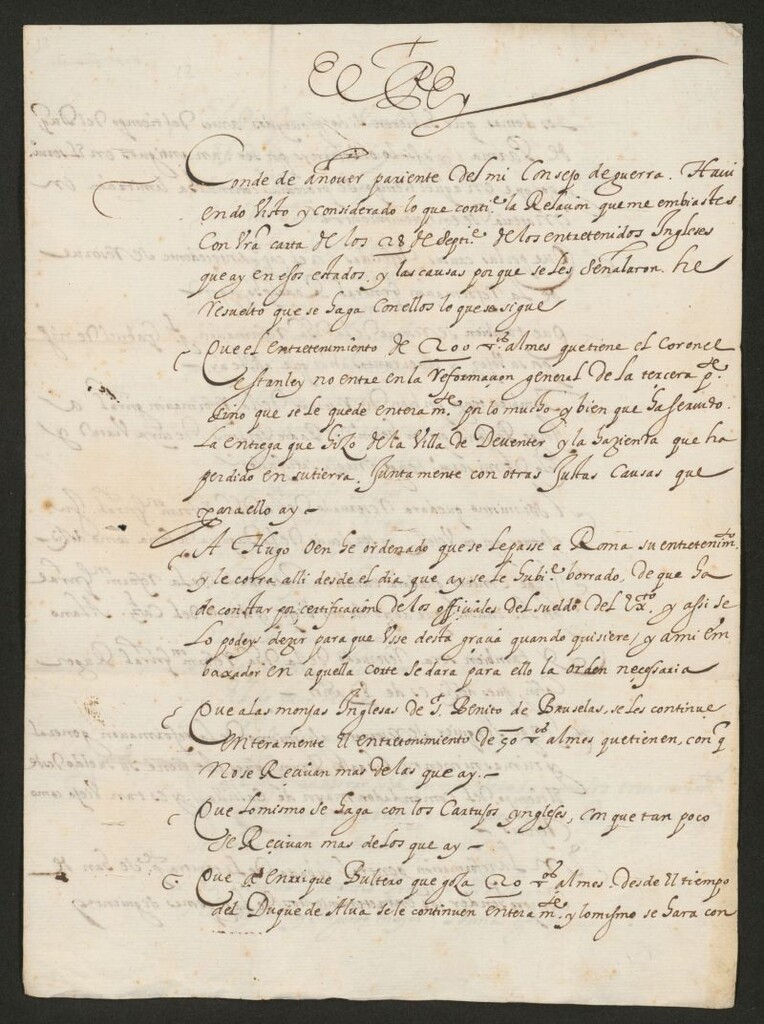 El Rey
Conde de añover pariente del mi Consejo de guerra. Havi
endo visto y considerado lo que conti.e la Relaçion que me embiastes
con vra carta de los 28 de septi.e de los entretenidos Ingleses
que ay en esos estados, y las causas porque se les señalaron. he
resuelto que se haga con ellos lo que se sigue
Que el entretenimiento de 200 al mes que tiene el Coronel
Estanley no entre en la reformaçion general de la tercera p.te
sino que se le quede entera m.te por lo mucho y bien que ha servido.
La entrega que hizo de la Villa de Deventer y la hazienda que ha
perdido en su tierra. Juntamente con otras Justas Causas que
para ello ay –
A Hugo Oen he ordenado que se le passe a Roma su entretenim.to
y le corra alli desde el dia que ay se le hubi.e borrado, de que ha
de constar por certificaçion de los offiçiales del sueldo del Ex.to, y assi se
lo podeys dezir para que Use desta graçia quando quisiere, y a mi Em
baxador en aquella corte se dara para ello la orden necessaria
Que a las monjas Inglesas de S. Benito de Bruselas, se les continue
enteramente El entretenimiento de 50 al mes que tienen, con q
No se Recivan mas de las que ay. –
Que lo mismo se haga con los Cartuxos yngleses, con que tan poco
se Recivan mas de los que ay –
Que a Enrrique Bultero que goza 20 al mes desde El tiempo
del Duque de Alva se le continuen entera m.te y lo mismo se hara con